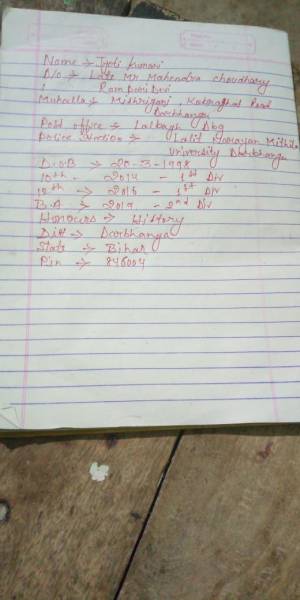 Name → Jyoti Kumari
D/o → Late Mr Mahendra choudhary
Rampari Devi
Muhalla → Mishriganj, Katarathal Road
Darbhanga
Post office → Lalbagh Dbg
Police Station → Lalit Narayan Mithila
University Darbhanga
D.O.B → 20-3-1998
10th - 2014 - 1st Div
12th → 2016 - 1st Div
B.A → 2019 - 2nd Div
Honours → History
Dist → Darbhanga
State → Bihar
Pin → 846004